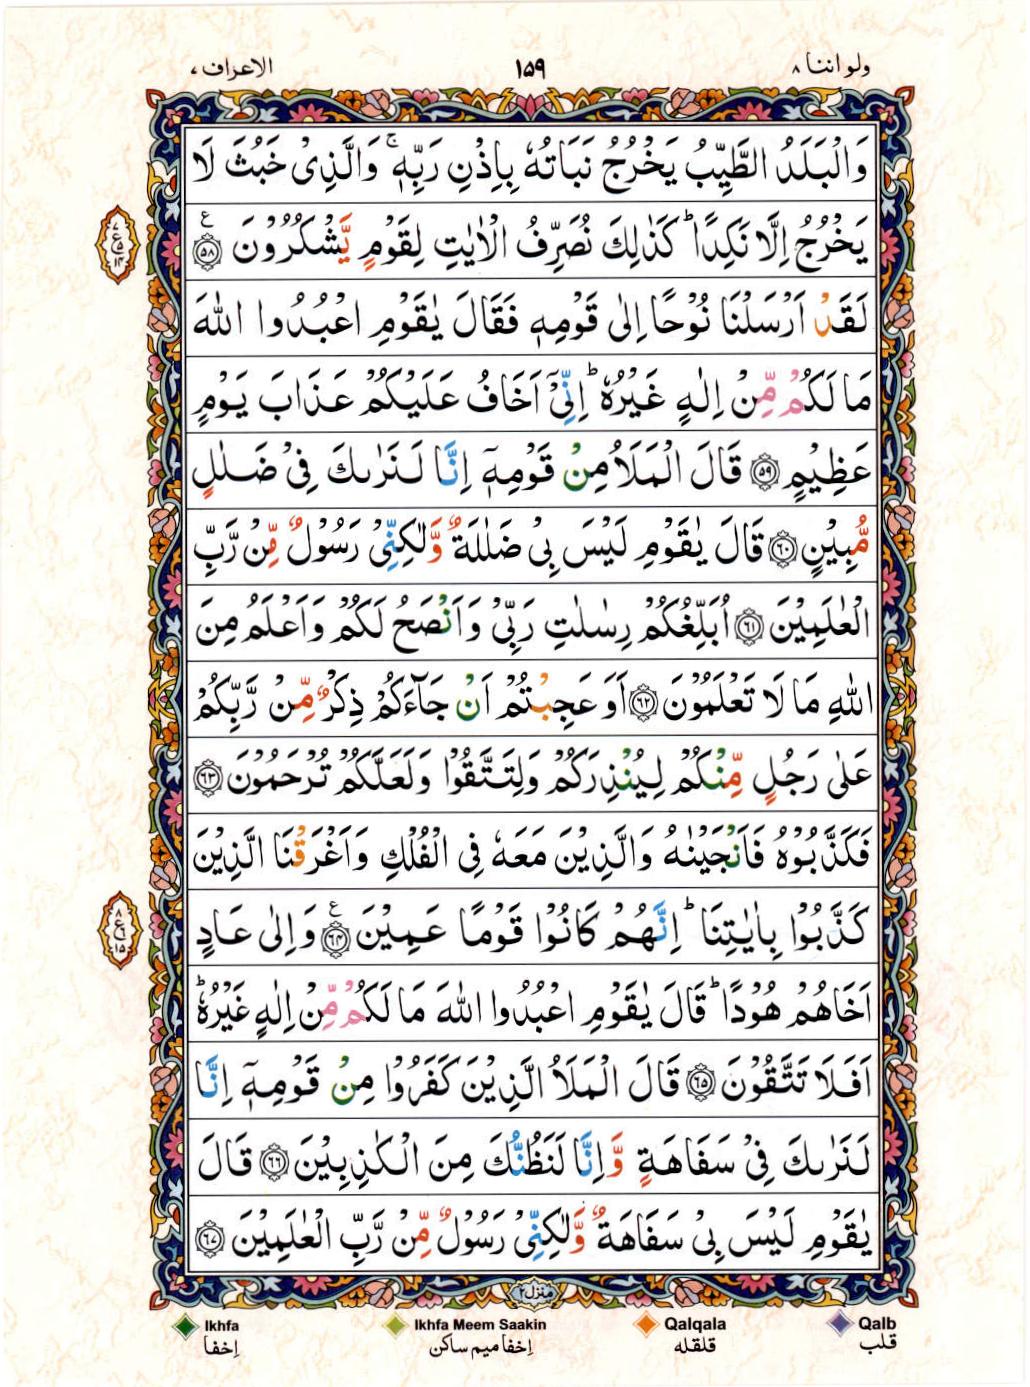 الاعراف ۷ ۱۵۹ ولو اننا ۸
وَالْبَلَدُ الطَّيِّبُ يَخْرُجُ نَبَاتُهٗ بِاِذْنِ رَبِّهٖ ۚ وَالَّذِىْ خَبُثَ لَا
يَخْرُجُ اِلَّا نَكِدًا ؕ كَذٰلِكَ نُصَرِّفُ الْاٰيٰتِ لِقَوْمٍ يَّشْكُرُوْنَ ۵۸ ع
۷ ع ۵ ۱۴
لَقَدْ اَرْسَلْنَا نُوْحًا اِلٰى قَوْمِهٖ فَقَالَ يٰقَوْمِ اعْبُدُوا اللّٰهَ
مَا لَكُمْ مِّنْ اِلٰهٍ غَيْرُهٗ ؕ اِنِّىْۤ اَخَافُ عَلَيْكُمْ عَذَابَ يَوْمٍ
عَظِيْمٍ ۵۹ قَالَ الْمَلَاُ مِنْ قَوْمِهٖۤ اِنَّا لَنَرٰىكَ فِىْ ضَلٰلٍ
مُّبِيْنٍ ۶۰ قَالَ يٰقَوْمِ لَيْسَ بِىْ ضَلٰلَةٌ وَّلٰكِنِّىْ رَسُوْلٌ مِّنْ رَّبِّ
الْعٰلَمِيْنَ ۶۱ اُبَلِّغُكُمْ رِسٰلٰتِ رَبِّىْ وَاَنْصَحُ لَكُمْ وَاَعْلَمُ مِنَ
اللّٰهِ مَا لَا تَعْلَمُوْنَ ۶۲ اَوَعَجِبْتُمْ اَنْ جَآءَكُمْ ذِكْرٌ مِّنْ رَّبِّكُمْ
عَلٰى رَجُلٍ مِّنْكُمْ لِيُنْذِرَكُمْ وَلِتَتَّقُوْا وَلَعَلَّكُمْ تُرْحَمُوْنَ ۶۳
فَكَذَّبُوْهُ فَاَنْجَيْنٰهُ وَالَّذِيْنَ مَعَهٗ فِى الْفُلْكِ وَاَغْرَقْنَا الَّذِيْنَ
كَذَّبُوْا بِاٰيٰتِنَا ؕ اِنَّهُمْ كَانُوْا قَوْمًا عَمِيْنَ ۶۴ ع وَاِلٰى عَادٍ
۸ ع ۱۵
اَخَاهُمْ هُوْدًا ؕ قَالَ يٰقَوْمِ اعْبُدُوا اللّٰهَ مَا لَكُمْ مِّنْ اِلٰهٍ غَيْرُهٗ ؕ
اَفَلَا تَتَّقُوْنَ ۶۵ قَالَ الْمَلَاُ الَّذِيْنَ كَفَرُوْا مِنْ قَوْمِهٖۤ اِنَّا
لَنَرٰىكَ فِىْ سَفَاهَةٍ وَّاِنَّا لَنَظُنُّكَ مِنَ الْكٰذِبِيْنَ ۶۶ قَالَ
يٰقَوْمِ لَيْسَ بِىْ سَفَاهَةٌ وَّلٰكِنِّىْ رَسُوْلٌ مِّنْ رَّبِّ الْعٰلَمِيْنَ ۶۷
منزل ۲
Ikhfa Ikhfa Meem Saakin Qalqala Qalb
اِخفا اِخفا میم ساکن قلقله قلب